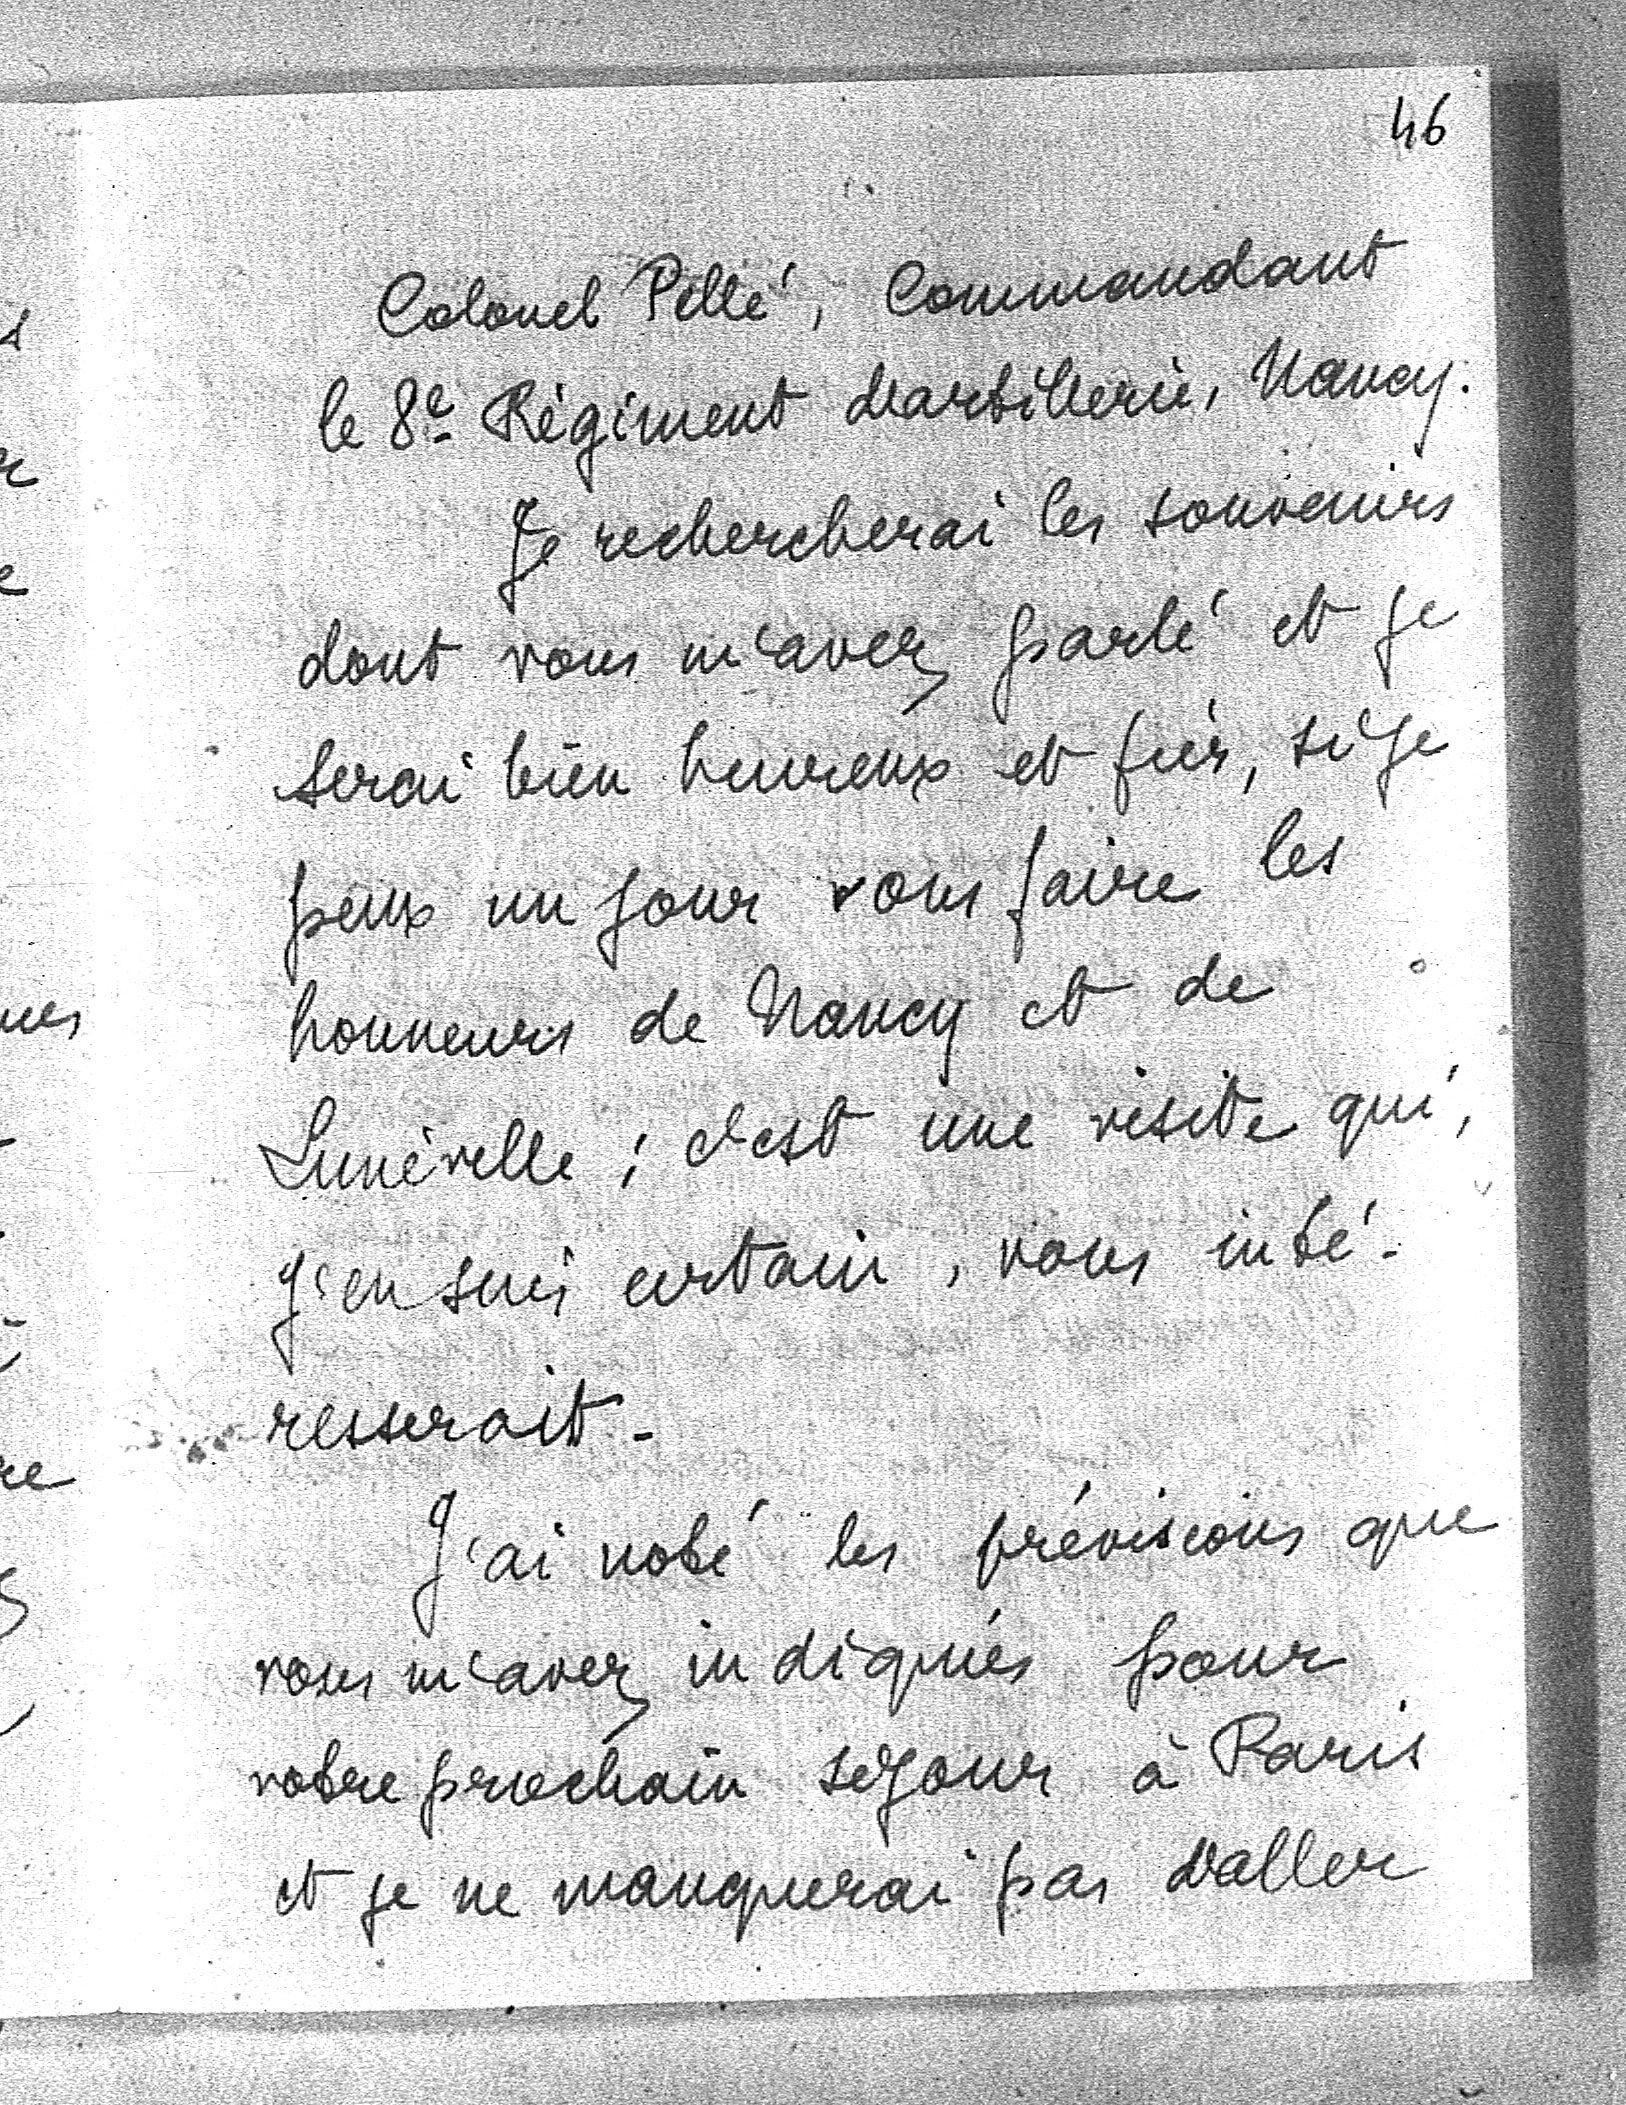 46
Colonel Pellé, Commandant
le 8e Régiment d'artillerie, Nancy.
Je rechercherai les souvenirs
dont vous m'avez parlé et je
serai bien heureux et fier, si je
peux un jour vous faire les
honneurs de Nancy et de
Lunéville ; c'est une visite qui,
j'en suis certain, vous inté-
resserait.
J'ai noté les prévisions que
vous m'avez indiquées pour
votre prochain séjour à Paris
et je ne manquerai pas d'aller